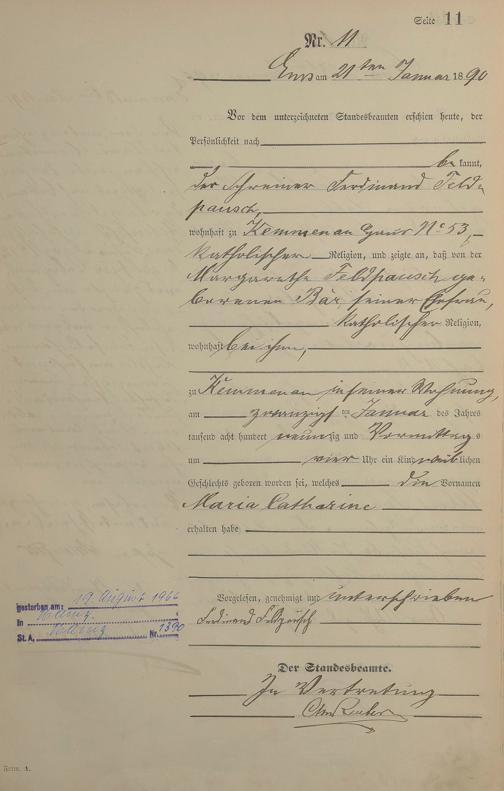 Seite 11
Nr. 11
Ems am 21ten Januar 1890
Vor dem unterzeichneten Standesbeamten erschien heute, der
Persönlichkeit nach
be kannt,
der Schreiner Ferdinand Feld-
pausch,
wohnhaft zu Kemmenau Haus No 53,
katholischer Religion, und zeigte an, daß von der
Margarethe Feldpausch ge-
borenen Bär seiner Ehefrau,
katholischer Religion,
wohnhaft bei ihm,
zu Kemmenau in seiner Wohnung,
am zwanzigsten Januar des Jahres
tausend acht hundert neunzig und Vormittags
um vier Uhr ein Kind weiblichen
Geschlechts geboren worden sei, welches die Vornamen
Maria Catharine
erhalten habe
Vorgelesen, genehmigt und unterschrieben
Ferdinand Feldpausch
Der Standesbeamte.
In Vertretung
gestorben am: 19 August 1966
In
St. A. Nr. 1390
Form. A.